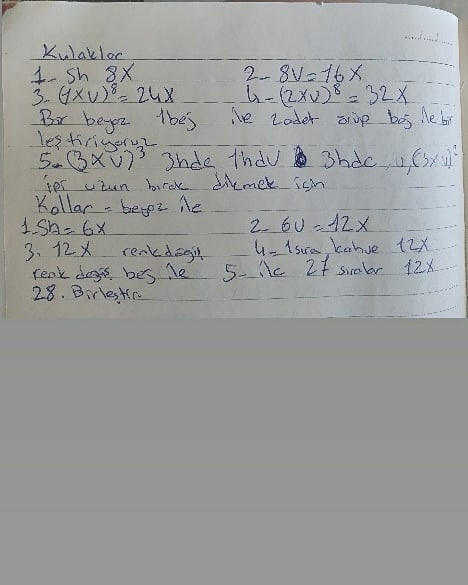 Kulaklar
1- Sh 8X 2- 8V=16X
3- (1XV)⁸=24X 4- (2XV)⁸=32X
Bir beyaz 1 bej ile 2 adet örüp bej ile bir
leştiriyoruz
5- (3XV)³ 3hdc 1hdV 3hdc V,(3XV)²
ipi uzun bırak dikmek için
Kollar = beyaz ile
1. Sh=6X 2- 6V=12X
3. 12X renk değiş 4- 1 sıra kahve 12X
renk değiş bej ile 5- ile 27 sıralar 12X
28. Birleştir